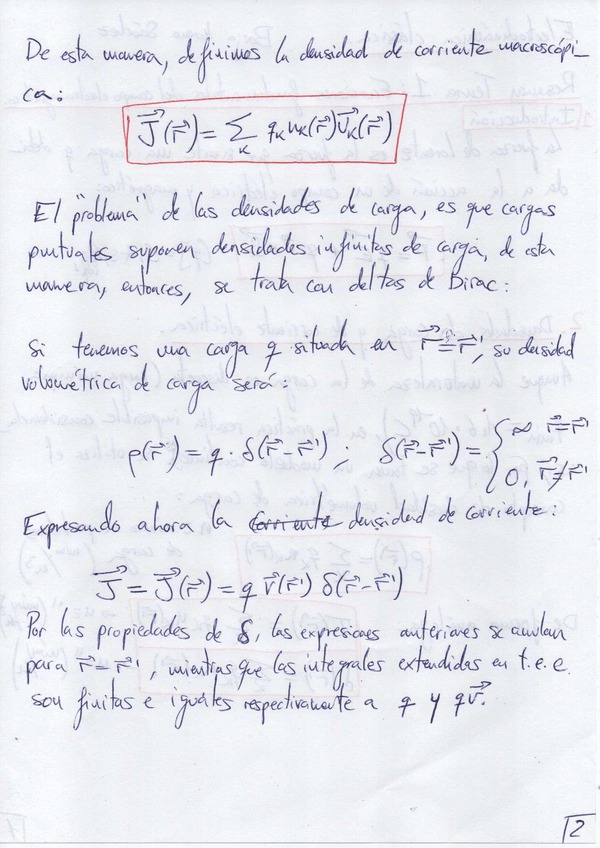 De esta manera, definimos la densidad de corriente macroscópi-
ca:
J⃗(r⃗) = Σ_K q_K n_K(r⃗) v⃗_K(r⃗)
El "problema" de las densidades de carga, es que cargas
puntuales suponen densidades infinitas de carga, de esta
manera, entonces, se trata con deltas de Dirac:
Si tenemos una carga q situada en r⃗ = r⃗', su densidad
volumétrica de carga será:
ρ(r⃗) = q · δ(r⃗ - r⃗') ; δ(r⃗ - r⃗') = { ∞ r⃗ = r⃗'
0, r⃗ ≠ r⃗'
Expresando ahora la corriente densidad de corriente:
J⃗ = J⃗(r⃗) = q v⃗(r⃗') δ(r⃗ - r⃗')
Por las propiedades de δ, las expresiones anteriores se anulan
para r⃗ - r⃗', mientras que las integrales extendidas en t.e.e.
son finitas e iguales respectivamente a q y qv⃗.
2